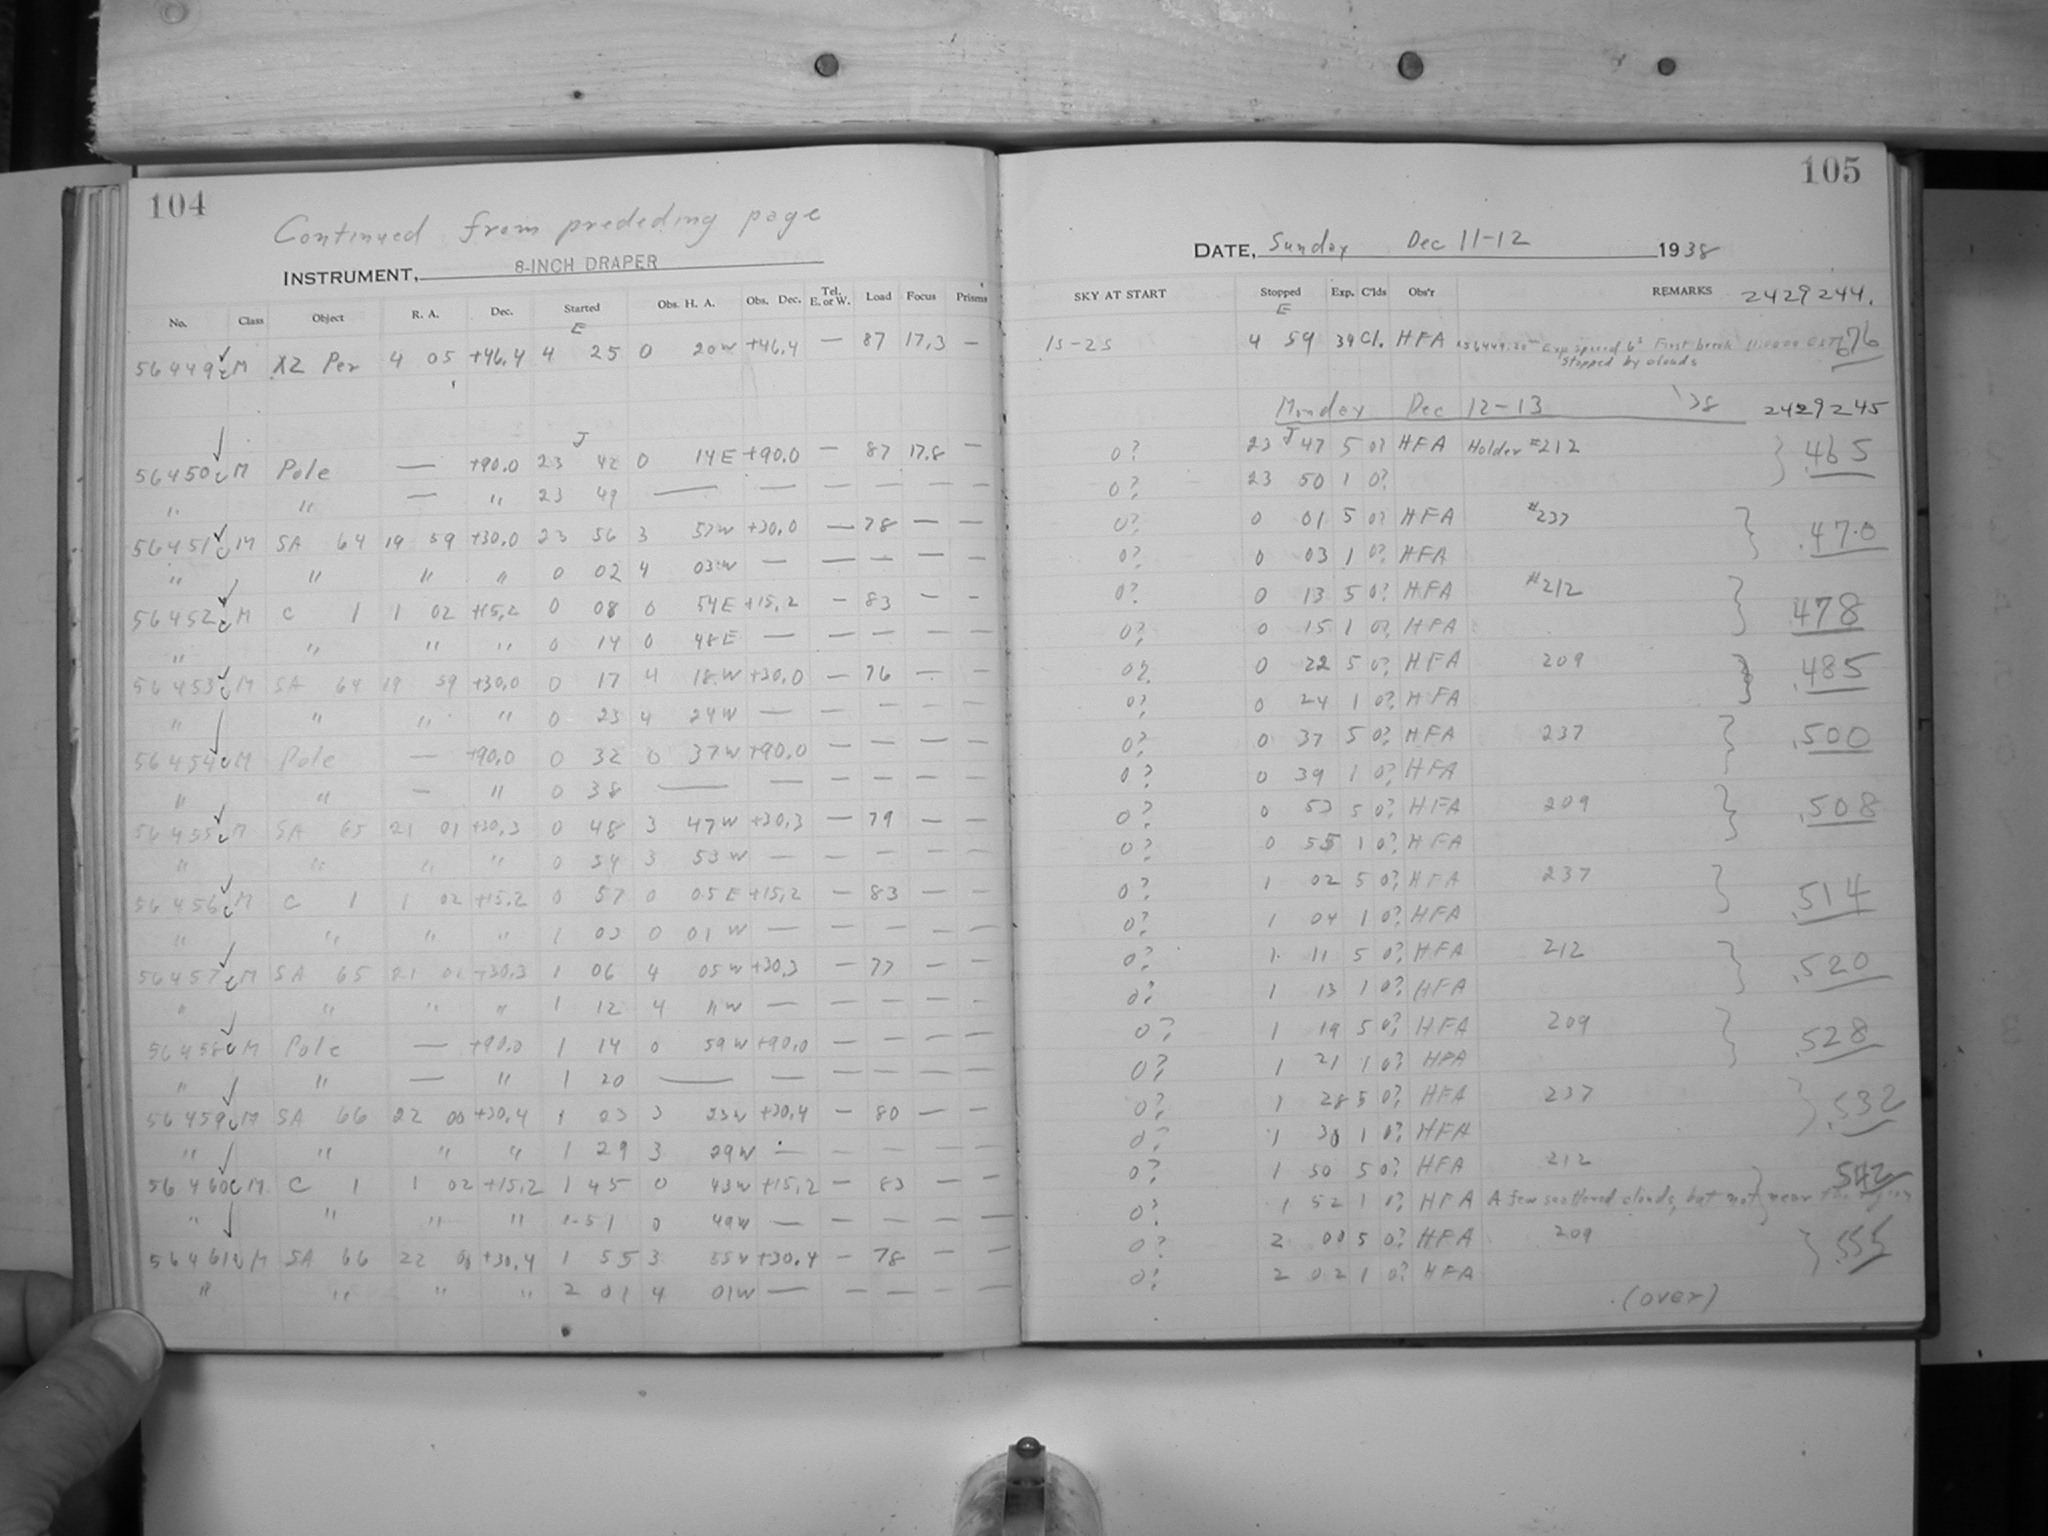 104
Continued from prededing page
INSTRUMENT, 8-INCH DRAPER
No. Class Object R. A. Dec. Started Obs. H. A. Obs. Dec. Tel. E. or W. Load Focus Prisms
E
56449 M XZ Per 4 05 +46.4 4 25 0 20W +46.4 — 87 17.3 —
J
56450 M Pole — +90.0 23 42 0 14E +90.0 — 87 17.8 —
" " — " 23 49 — — — — — —
56451 M SA 64 19 59 +30.0 23 56 3 57W +30.0 — 78 — —
" " " " 0 02 4 03W — — — — —
56452 M C 1 1 02 +15.2 0 08 0 54E +15.2 — 83 — —
" " " " 0 14 0 48E — — — — —
56453 M SA 64 19 59 +30.0 0 17 4 18W +30.0 — 76 — —
" " " " 0 23 4 24W — — — — —
56454 M Pole — +90.0 0 32 0 37W +90.0 — — — —
" " — " 0 38 — — — — — —
56455 M SA 65 21 01 +30.3 0 48 3 47W +30.3 — 79 — —
" " " " 0 54 3 53W — — — — —
56456 M C 1 1 02 +15.2 0 57 0 05E +15.2 — 83 — —
" " " " 1 03 0 01W — — — — —
56457 M SA 65 21 01 +30.3 1 06 4 05W +30.3 — 77 — —
" " " " 1 12 4 11W — — — — —
56458 M Pole — +90.0 1 14 0 59W +90.0 — — — —
" " — " 1 20 — — — — — —
56459 M SA 66 22 00 +30.4 1 03 3 23W +30.4 — 80 — —
" " " " 1 29 3 29W — — — — —
56460 M C 1 1 02 +15.2 1 45 0 43W +15.2 — 83 — —
" " " " 1 51 0 49W — — — — —
56461 M SA 66 22 00 +30.4 1 55 3 55W +30.4 — 78 — —
" " " " 2 01 4 01W — — — — —
105
DATE, Sunday Dec 11-12 1938
SKY AT START Stopped Exp. C'lds Obs'r REMARKS 2429244.
E
1s-2s 4 59 34 Cl. HFA Exp spread 6s First break 676
Stopped by clouds
Monday Dec 12-13 '38 2429245
0? 23 J 47 5 0? HFA Holder #212 .465
0? 23 50 1 0?
0? 0 01 5 0? HFA #237 .470
0? 0 03 1 0? HFA
0? 0 13 5 0? HFA #212 .478
0? 0 15 1 0? HFA
0? 0 22 5 0? HFA 209 .485
0? 0 24 1 0? HFA
0? 0 37 5 0? HFA 237 .500
0? 0 39 1 0? HFA
0? 0 53 5 0? HFA 209 .508
0? 0 55 1 0? HFA
0? 1 02 5 0? HFA 237 .514
0? 1 04 1 0? HFA
0? 1 11 5 0? HFA 212 .520
0? 1 13 1 0? HFA
0? 1 19 5 0? HFA 209 .528
0? 1 21 1 0? HFA
0? 1 28 5 0? HFA 237 .532
0? 1 30 1 0? HFA
0? 1 50 5 0? HFA 212 542
0? 1 52 1 0? HFA A few scattered clouds, but not near the region
0? 2 00 5 0? HFA 209 .555
0? 2 02 1 0? HFA
(over)